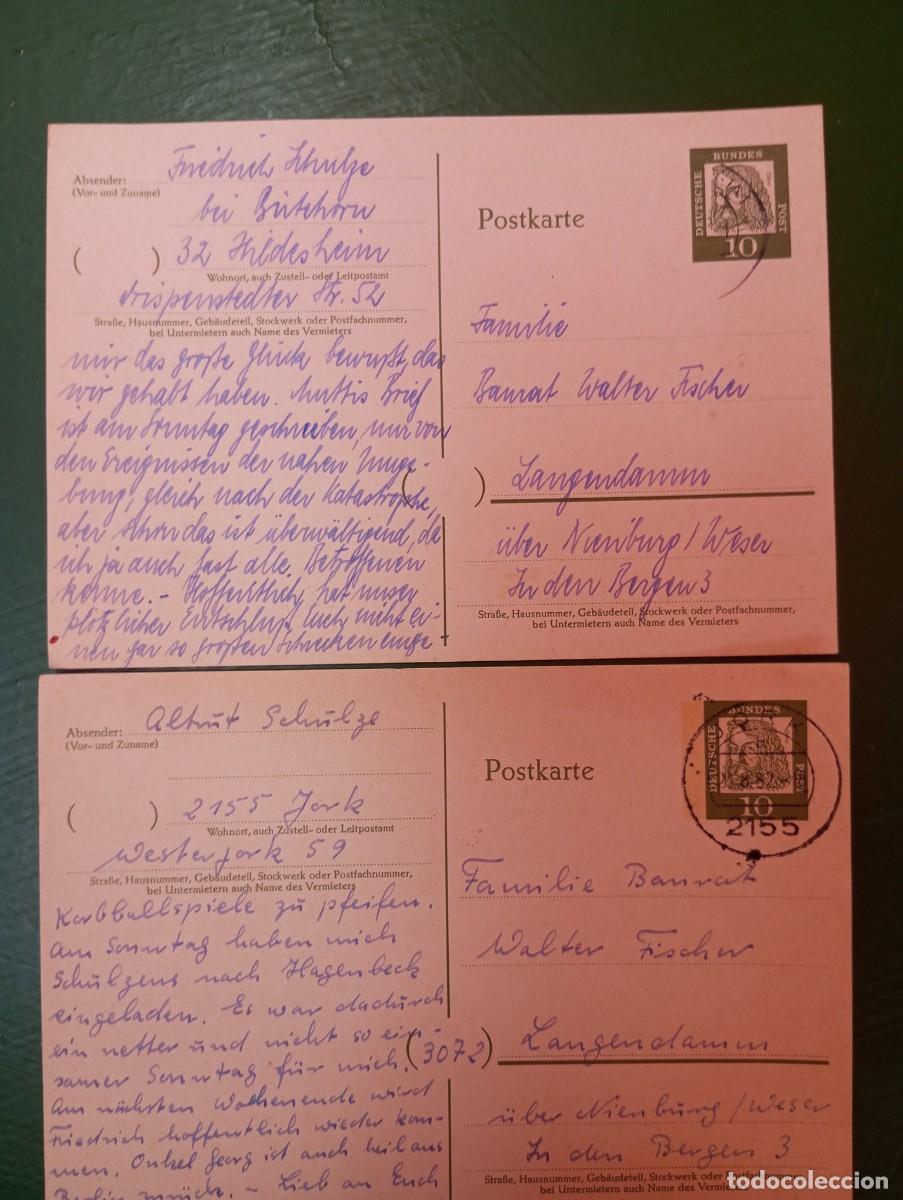 Absender:
(Vor- und Zuname)
Friedrich Schulze
bei Bütehorn
( ) 32 Hildesheim
Wohnort, auch Zustell- oder Leitpostamt
Trispenstedter Str. 52
Straße, Hausnummer, Gebäudeteil, Stockwerk oder Postfachnummer,
bei Untermietern auch Name des Vermieters
mir das große Glück bewußt, das
wir gehabt haben. Muttis Brief
ist am Sonntag geschrieben, nur von
den Ereignissen der nahen Umge-
bung, gleich nach der Katastrophe,
aber schon das ist überwältigend, da
ich ja auch fast alle Betroffenen
kenne. - Hoffentlich hat unser
plötzlicher Entschluß Euch nicht ei-
nen gar so großen Schrecken einge-
Postkarte
DEUTSCHE
BUNDES
POST
10
Familie
Baurat Walter Fischer
( ) Langendamm
über Nienburg/Weser
In den Bergen 3
Straße, Hausnummer, Gebäudeteil, Stockwerk oder Postfachnummer,
bei Untermietern auch Name des Vermieters
Absender:
(Vor- und Zuname)
Altrut Schulze
( ) 2155 Jork
Wohnort, auch Zustell- oder Leitpostamt
Westerjork 59
Straße, Hausnummer, Gebäudeteil, Stockwerk oder Postfachnummer,
bei Untermietern auch Name des Vermieters
Korbballspiele zu pfeifen.
Am Sonntag haben mich
Schulzens nach Hagenbeck
eingeladen. Es war dadurch
ein netter und nicht so ein-
samer Sonntag für mich.
Am nächsten Wochenende wird
Friedrich hoffentlich wieder kom-
men. Onkel Georg ist auch heil aus
Berlin zurück. - Lieb an Euch
Postkarte
DEUTSCHE
BUNDES
POST
10
2155
Familie Baurat
Walter Fischer
(3072) Langendamm
über Nienburg/Weser
In den Bergen 3
Straße, Hausnummer, Gebäudeteil, Stockwerk oder Postfachnummer,
bei Untermietern auch Name des Vermieters
todocoleccion